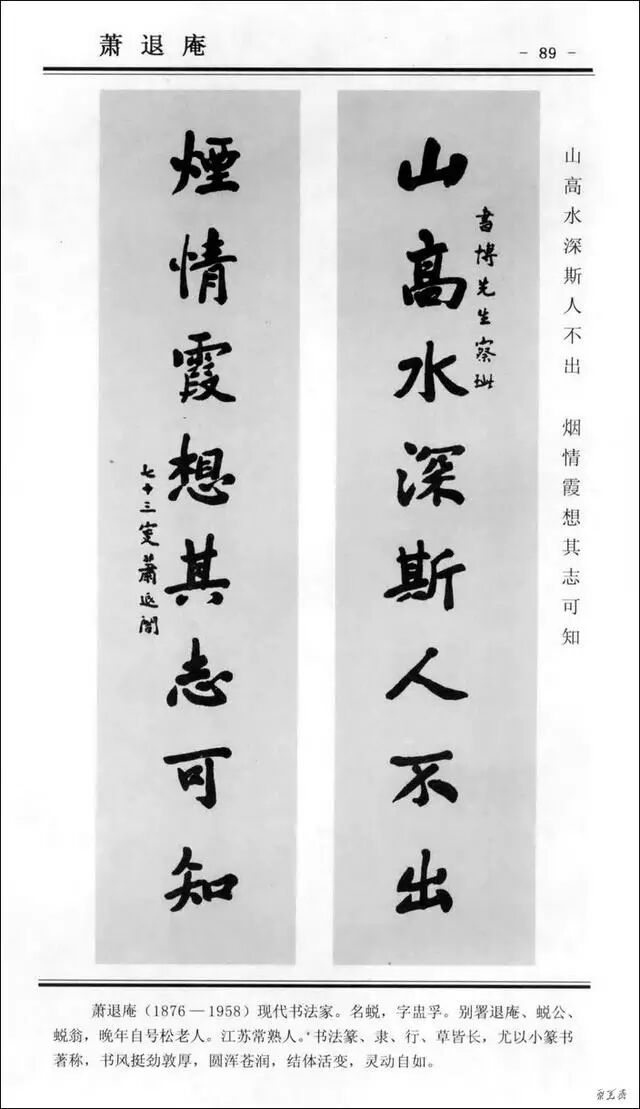 萧退庵
- 89 -
山高水深斯人不出
書博先生察
煙情霞想其志可知
七十三叟蕭退闇
山高水深斯人不出 烟情霞想其志可知
萧退庵(1876—1958)现代书法家。名蜕,字盅孚。别署退庵、蜕公、
蜕翁,晚年自号松老人。江苏常熟人。书法篆、隶、行、草皆长,尤以小篆书
著称,书风挺劲敦厚,圆浑苍润,结体活变,灵动自如。